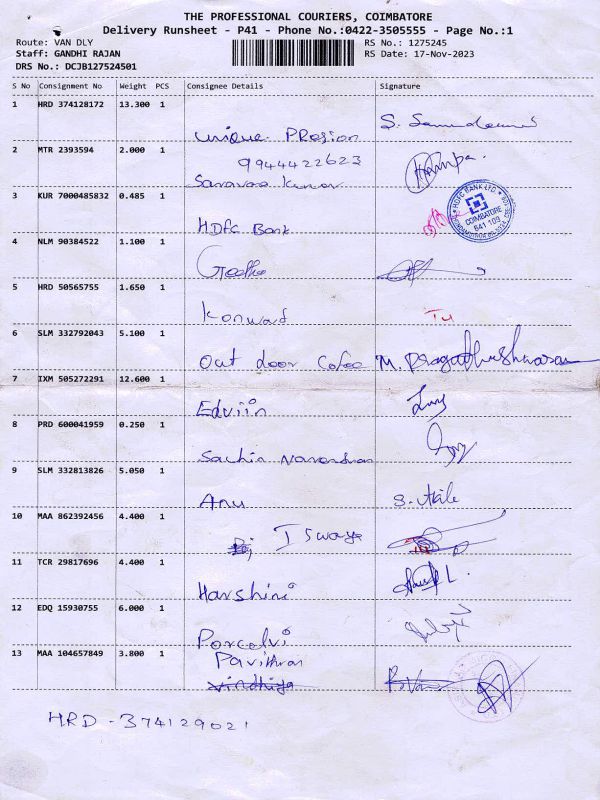 THE PROFESSIONAL COURIERS, COIMBATORE
Delivery Runsheet - P41 - Phone No.:0422-3505555 - Page No.:1
Route: VAN DLY RS No.: 1275245
Staff: GANDHI RAJAN RS Date: 17-Nov-2023
DRS No.: DCJB127524501
S No Consignment No Weight PCS Consignee Details Signature
1 HRD 374128172 13.300 1
Unique
2 MTR 2393594 2.000 1
9944422623
3 KUR 7000485832 0.485 1
HDFC BANK LTD.
COIMBATORE
641 109
HDfc Bank
4 NLM 90384522 1.100 1
Geetha
5 HRD 50565755 1.650 1
6 SLM 332792043 5.100 1
Out door M.
7 IXM 505272291 12.600 1
8 PRD 600041959 0.250 1
Sachin
9 SLM 332813826 5.050 1
Anu S.
10 MAA 862392456 4.400 1
11 TCR 29817696 4.400 1
Harshini
12 EDQ 15930755 6.000 1
Porcelvi
13 MAA 104657849 3.800 1
Pavithran
HRD - 374129021